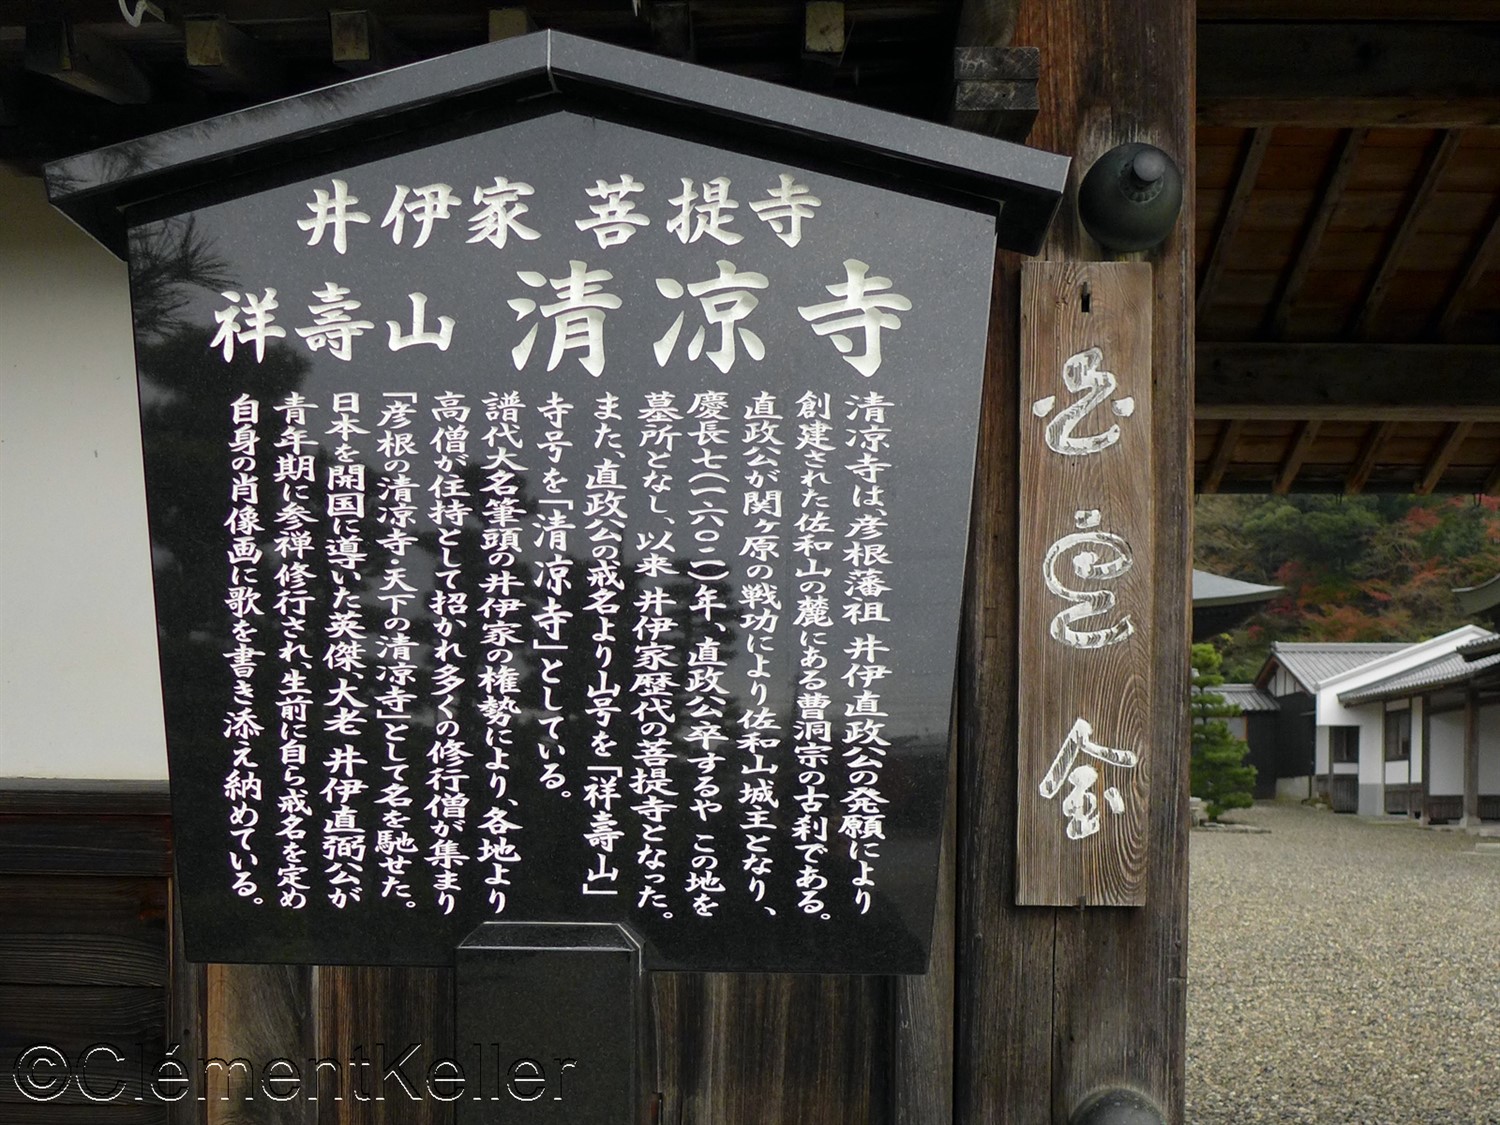 井伊家 菩提寺
祥壽山 清凉寺
清凉寺は、彦根藩祖 井伊直政公の発願により
創建された佐和山の麓にある曹洞宗の古刹である。
直政公が関ヶ原の戦功により佐和山城主となり、
慶長七(一六〇二)年、直政公卒するや この地を
墓所となし、以来 井伊家歴代の菩提寺となった。
また、直政公の戒名より山号を「祥壽山」
寺号を「清凉寺」としている。
譜代大名筆頭の井伊家の権勢により、各地より
高僧が住持として招かれ多くの修行僧が集まり
「彦根の清凉寺・天下の清凉寺」として名を馳せた。
日本を開国に導いた英傑、大老 井伊直弼公が
青年期に参禅修行され、生前に自ら戒名を定め
自身の肖像画に歌を書き添え納めている。
©ClémentKeller